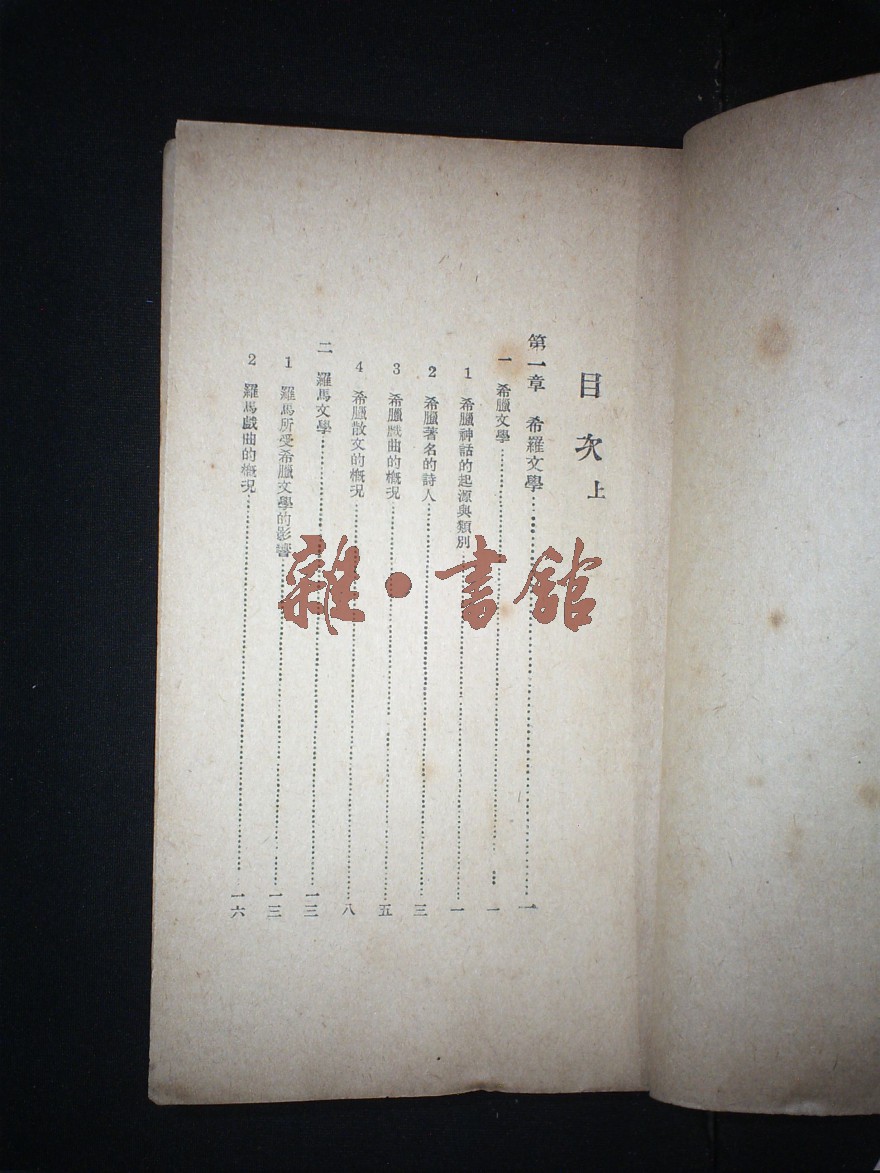 目次上
第一章 希羅文學……一
一 希臘文學……一
1 希臘神話的起源與類別……一
2 希臘著名的詩人……三
3 希臘戲曲的概況……五
4 希臘散文的概況……八
二 羅馬文學……一三
1 羅馬所受希臘文學的影響……一三
2 羅馬戲曲的概況……一六
雜·書館